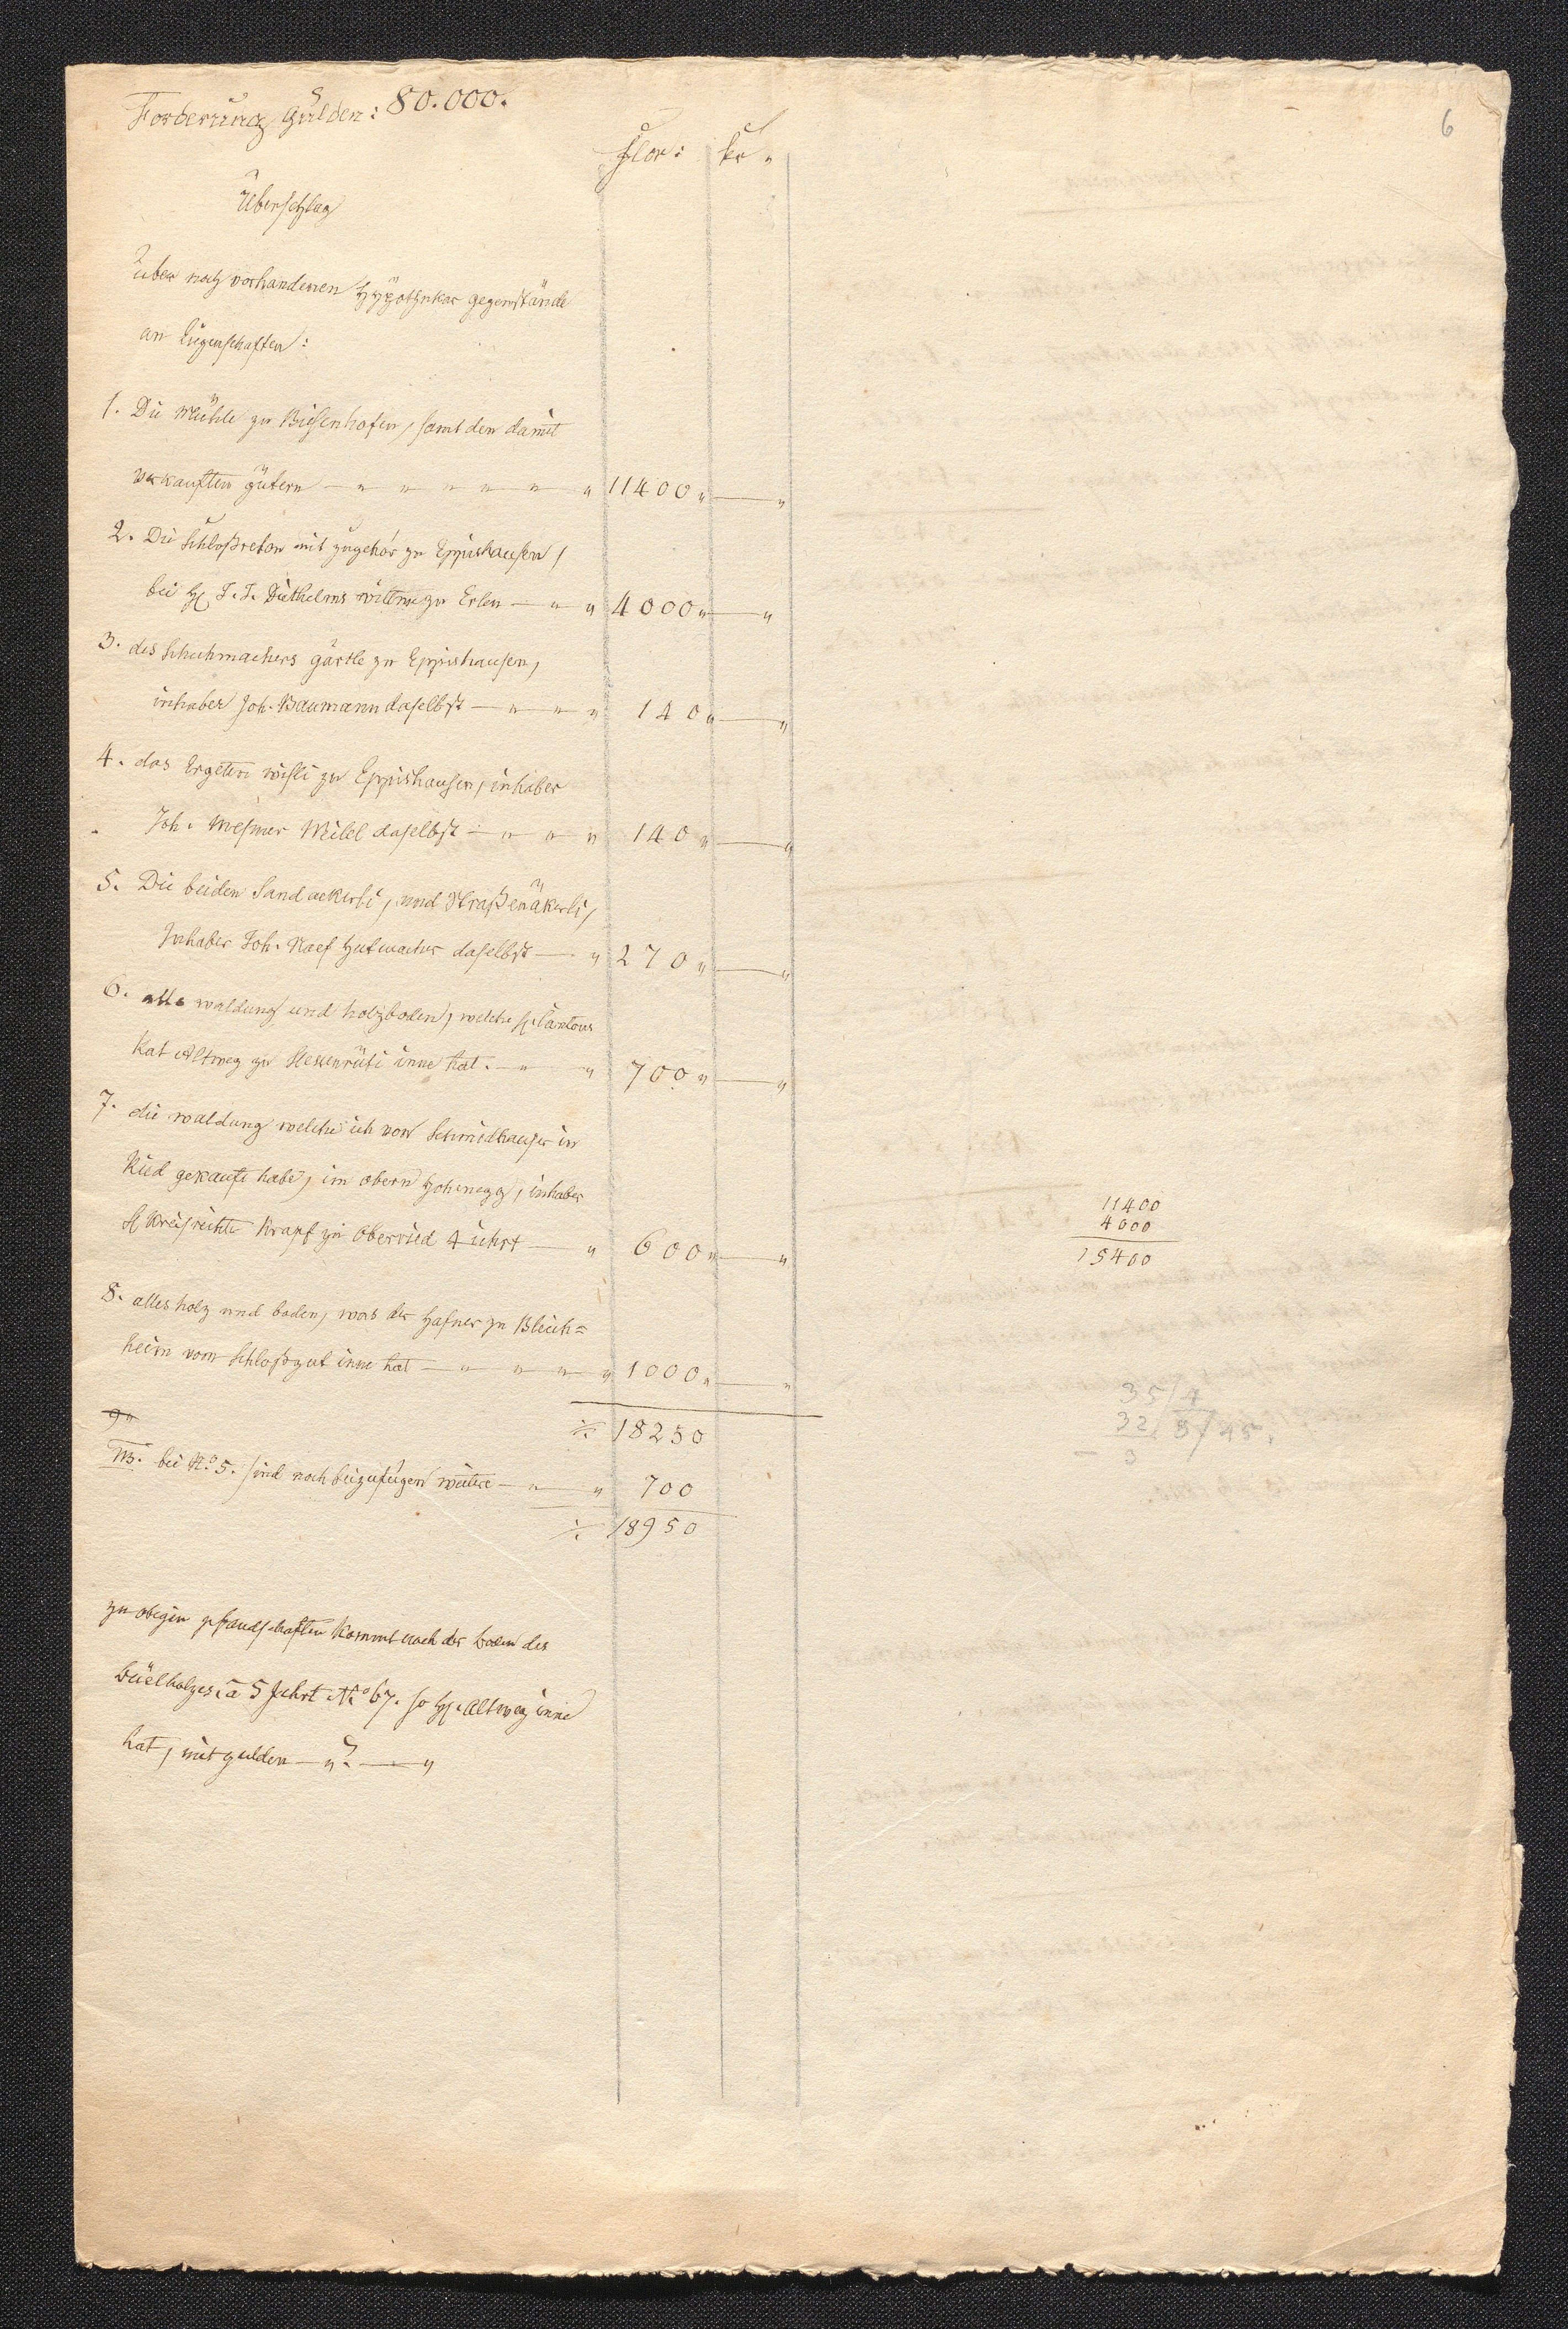 6
Forderung Gulden: 80.000.
Flor: kr.
Überschlag
über noch vorhandenen Hÿpothekar gegenstände
an Eigenschaften:
1. Die Mühle zu Biesenhofen, samt den damit
verkauften gütern — " " " " " " 11400 " — "
2. Die Schloßreben mit zugehör zu Eppishausen,
bei H. J. J. Diethelms wittwe zu Erlen — " " 4000 " — "
3. des Schuhmachers gärtle zu Eppishausen,
inhaber Joh. Baumann daselbst — " " " 140 " — "
4. das Ergeten wisli zu Eppishausen, inhaber
Joh. Mesmer daselbst — " " " 140 " — "
5. Die beiden Sandackerli, und Straßenäkerli,
Inhaber Joh. Naef Hutmacher daselbst — " 270 " — "
6. alle waldung und holzboden, welche H. Cantons
Rat Altweg zu Hessenrüti inne hat. — " " 700 " — "
7. die waldung welche ich von Schmidhauser in
Ried gekauft habe, im obern Hohenegg, inhaber
H Kreisrichter Krapf zu Oberried 4 Juhrt — " 600 " — "
8. alles holz und boden, was der Hafner zu Bleich=
heim vom Schloßgut inne hat — " " " " 1000 " — "
9 "
18250
NB. bei No. 5. sind noch beizufügen weitere — " " 700
18950
11400
4000
15400
35/4
32/8/45.
3
zu obigen pfandschaften kommt noch der boden des
büelholzes à 5 Juhrt No 67. so H. Altweg inne
hat, mit gulden — " ? — "